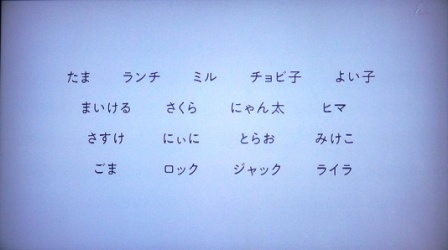 たま ランチ ミル チョビ子 よい子
まいける さくら にゃん太 ヒマ
さすけ にぃに とらお みけこ
ごま ロック ジャック ライラ